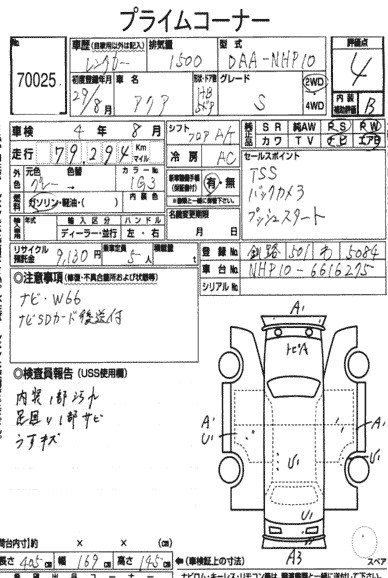 プライムコーナー
No. 70025
車歴 (自家用以外は記入) レンタカー
排気量 1500
型式 DAA-NHP10
評価点 4
初度登録年月 29/8月
車名 アクア
形状・ドア数 5ドア
グレード S
2WD 4WD
内装補助評価 B
車検 4年 8月
シフト フロアA/T
純正品 SR 純AW PS PW
カワ TV ナビ エアB
走行 79,294 Km マイル
冷房 AC
セールスポイント
TSS
バックカメラ
プッシュスタート
外色 元色 グレー→ 色替
カラーNo. 1G3
新車整備手帳(保証書付) 有・無
燃料 ガソリン・軽油・( )
内装色
名義変更期限 月 日
輸入車 年式 輸入区分 ハンドル
ディーラー・並行 左・右
リサイクル預託金 9,130円
乗車定員 5人
積載量 t
登録No. 釧路 501 わ 5084
車台No. NHP10-6616275
シリアルNo.
◎注意事項 (修復・不具合箇所および状態等)
ナビ・W66
ナビSDカード後送付
◎検査員報告 (USS使用欄)
内装1部汚れ
足回り1部サビ
うすキズ
A1
トビA
A1
U1
A1
U1
U1
U1
A3
荷台内寸(約 × × (cm)
長さ 405cm 幅 169cm 高さ 145cm ←(車検証上の寸法)
スペア